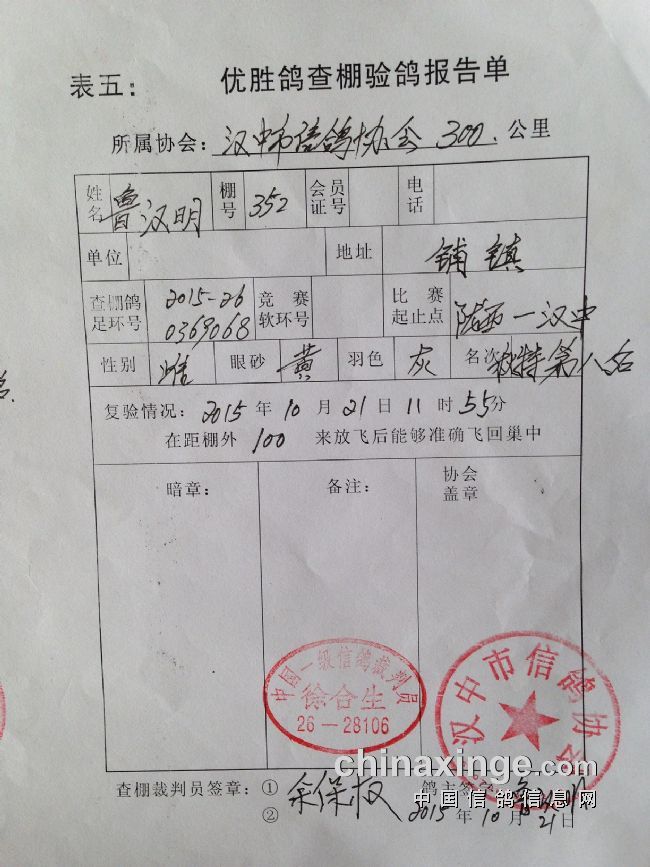 表五： 优胜鸽查棚验鸽报告单
所属协会：汉中市信鸽协会 300.公里
姓名 鲁汉明 棚号 352 会员证号 电话
单位 地址 铺镇
查棚鸽足环号 2015-26 0369068 竞赛软环号 比赛起止点 陇西—汉中
性别 雌 眼砂 黄 羽色 灰 名次 秋特第八名
复验情况：2015年10月21日11时55分
在距棚外 100 米放飞后能够准确飞回巢中
暗章： 备注： 协会盖章
中国一级信鸽裁判员
徐合生
26—28106
汉中市信鸽协会
查棚裁判员签章：① 余保权 鸽主签
② 2015年10月21日
chinaxinge.com
中国信鸽信息网